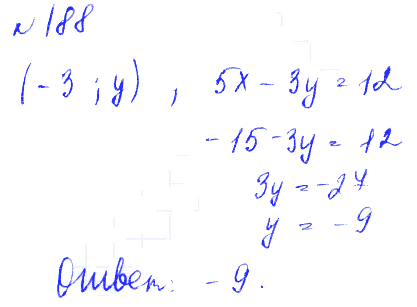 №188
(-3 ; y) , 5x - 3y = 12
-15 - 3y = 12
3y = -27
y = -9
Ответ: -9.